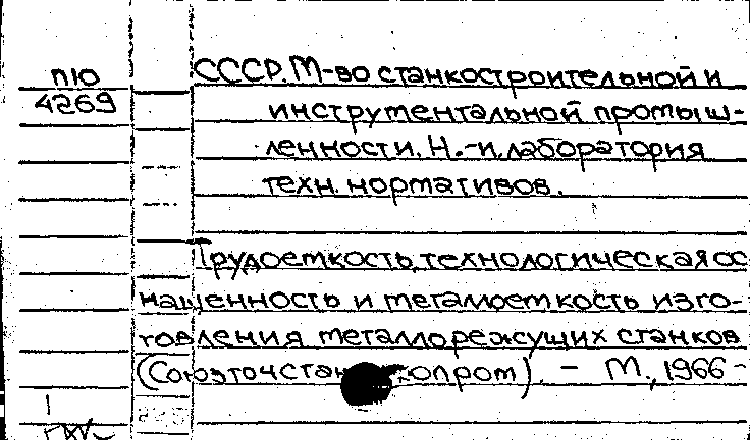 ПЮ
4269
СССР. М-во станкостроительной и
инструментальной промыш-
ленности. Н.-и. лаборатория
техн. нормативов.
Трудоемкость, технологическая ос
нащенность и металлоемкость изго-
товления металлорежущих станков
(Союзточстан копром) - М., 1966 -